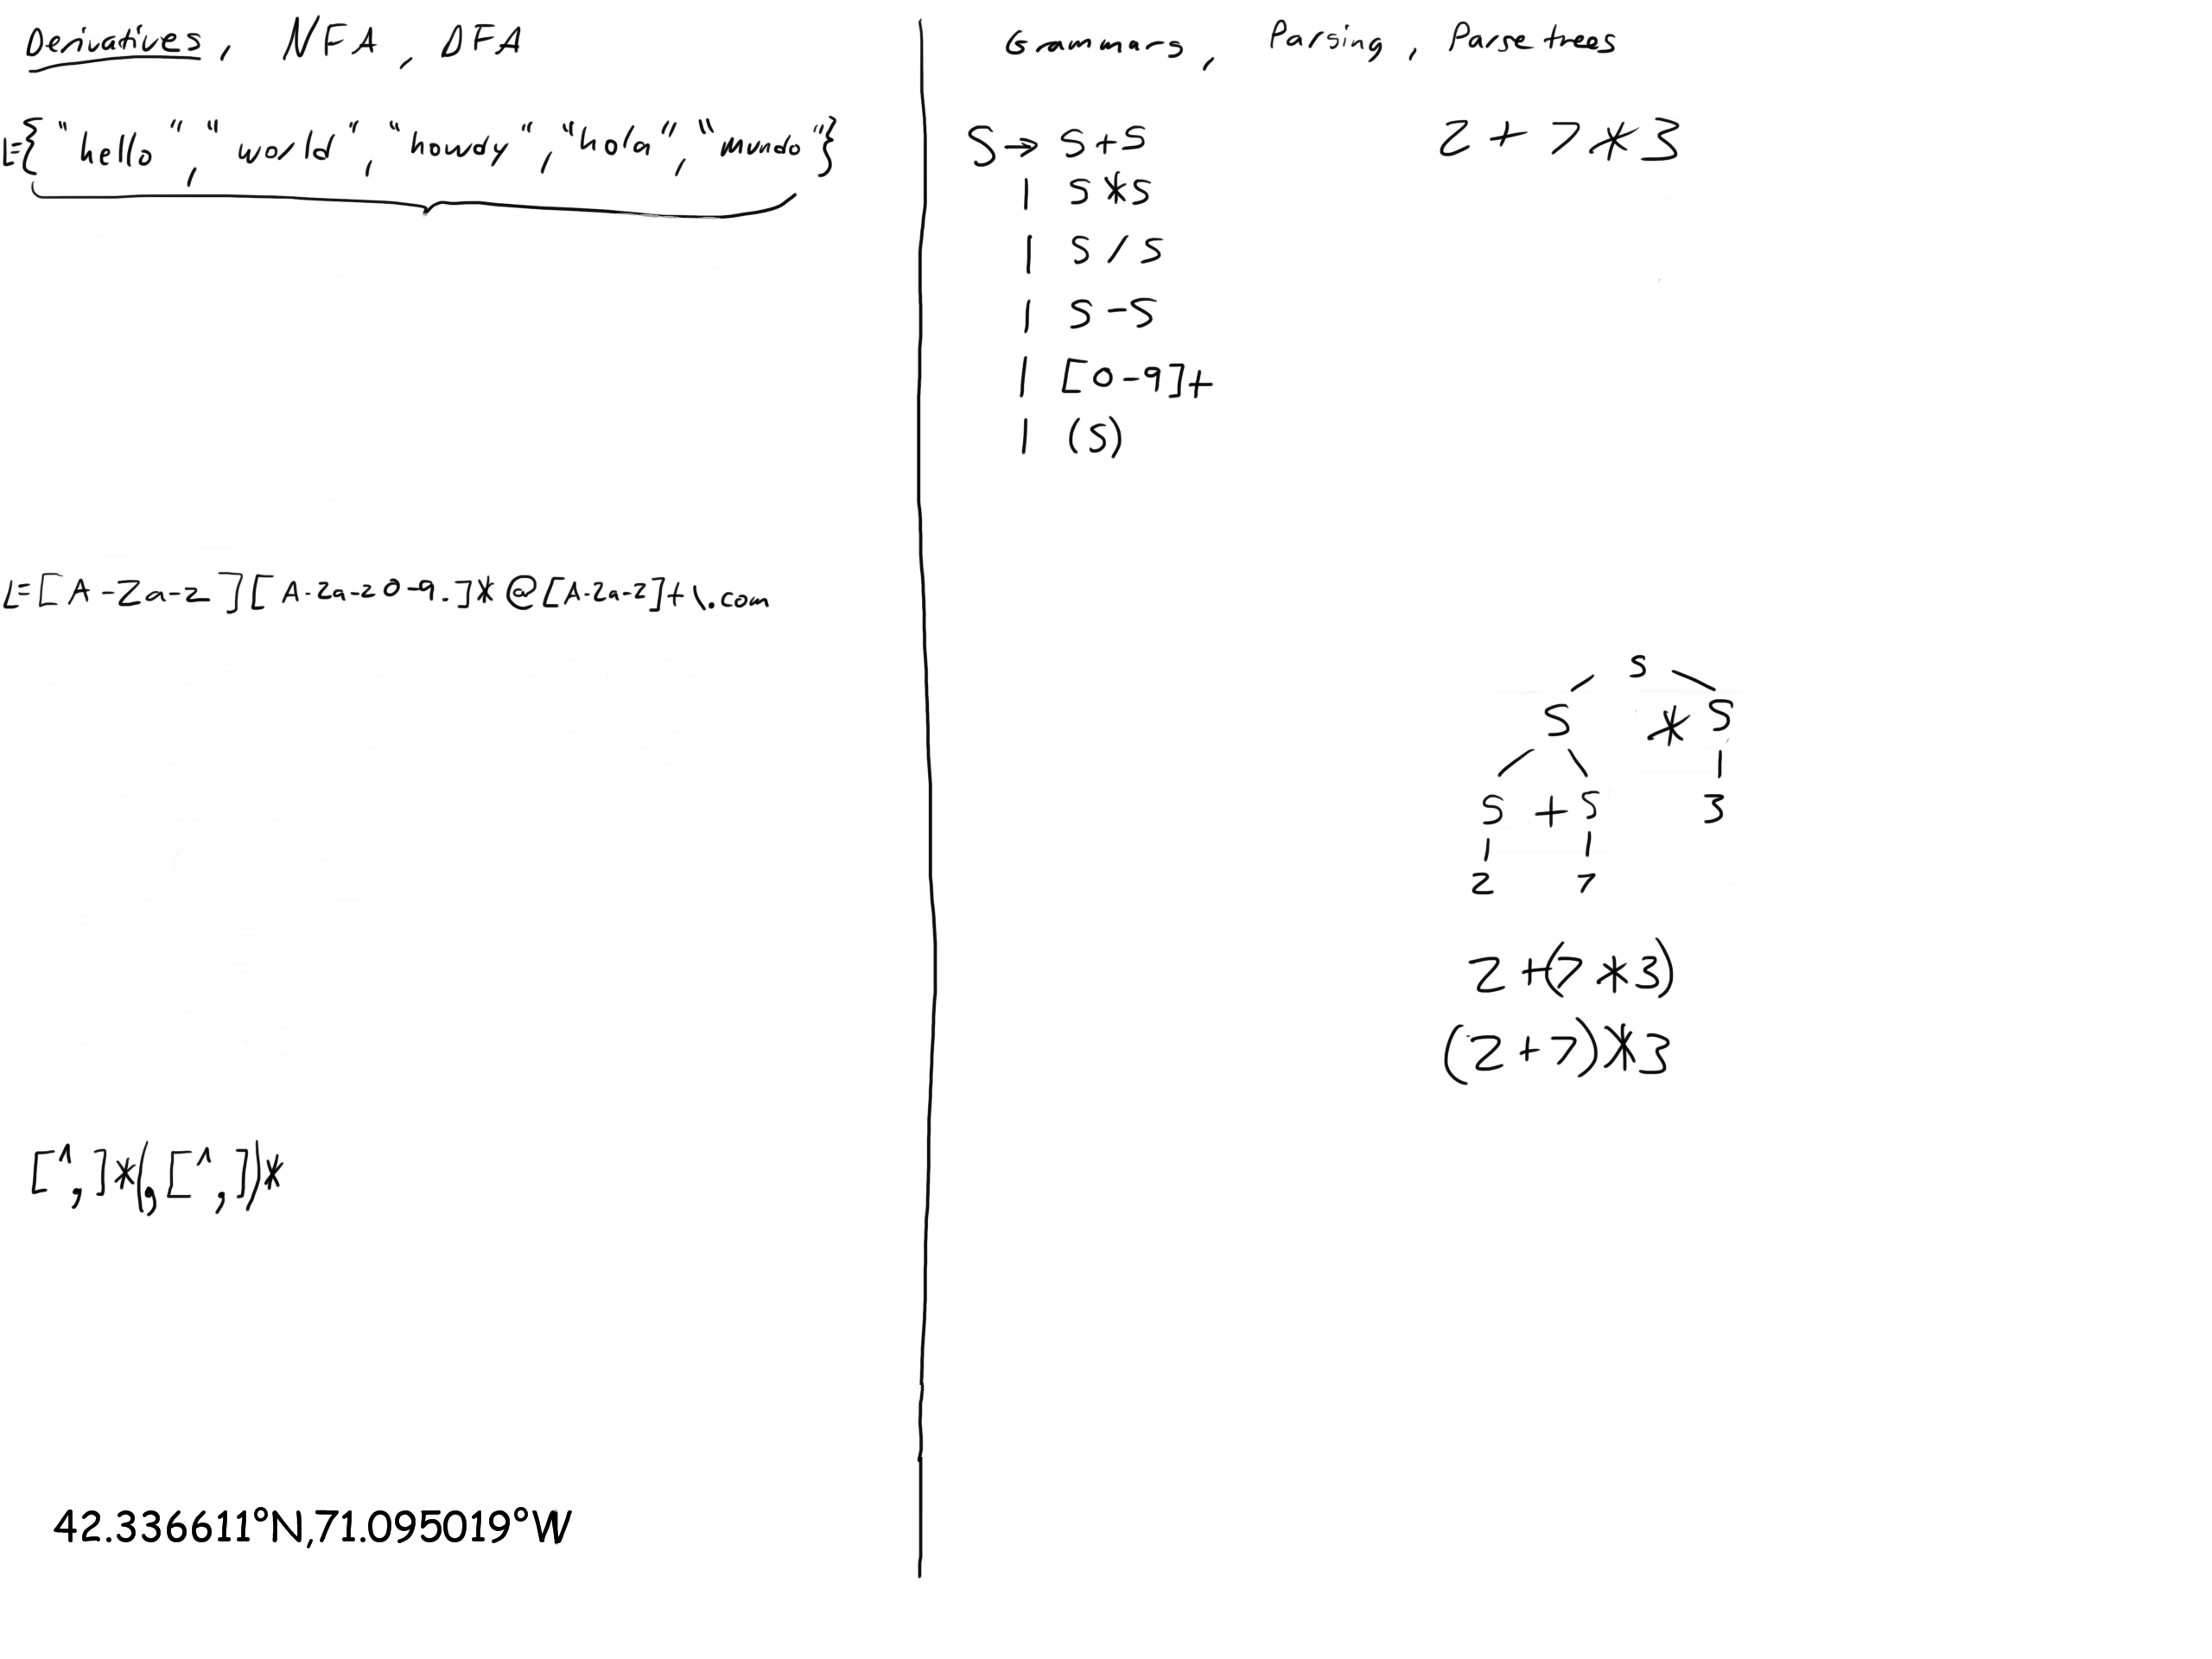 Derivatives, NFA, DFA
L={"hello", "world", "howdy", "hola", "mundo"}
L=[A-Za-z][A-Za-z0-9.]*@[A-Za-z]+\.com
[^,]*(,[^,])*
42.336611°N,71.095019°W
Grammars, Parsing, Parse trees
S→ S+S
| S*S
| S/S
| S-S
| [0-9]+
| (S)
2+7*3
S
S * S
S + S 3
2 7
2+(7*3)
(2+7)*3